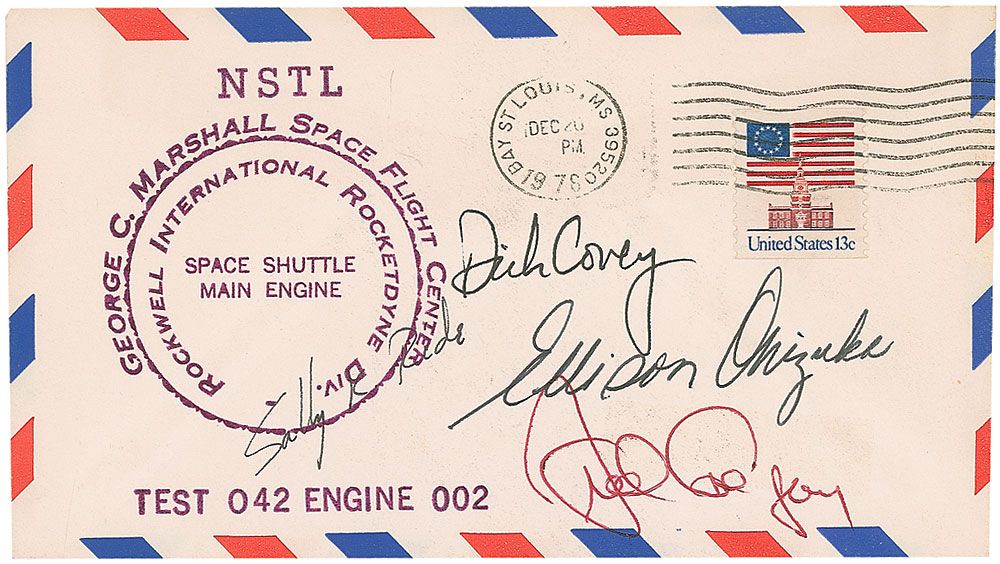 NSTL
GEORGE C. MARSHALL SPACE FLIGHT CENTER
ROCKWELL INTERNATIONAL ROCKETDYNE DIV.
SPACE SHUTTLE
MAIN ENGINE
BAY ST LOUIS, MS 39520
DEC 20
PM
1978
United States 13c
Dick Covey
Ellison Onizuka
Sally K Ride
TEST 042 ENGINE 002